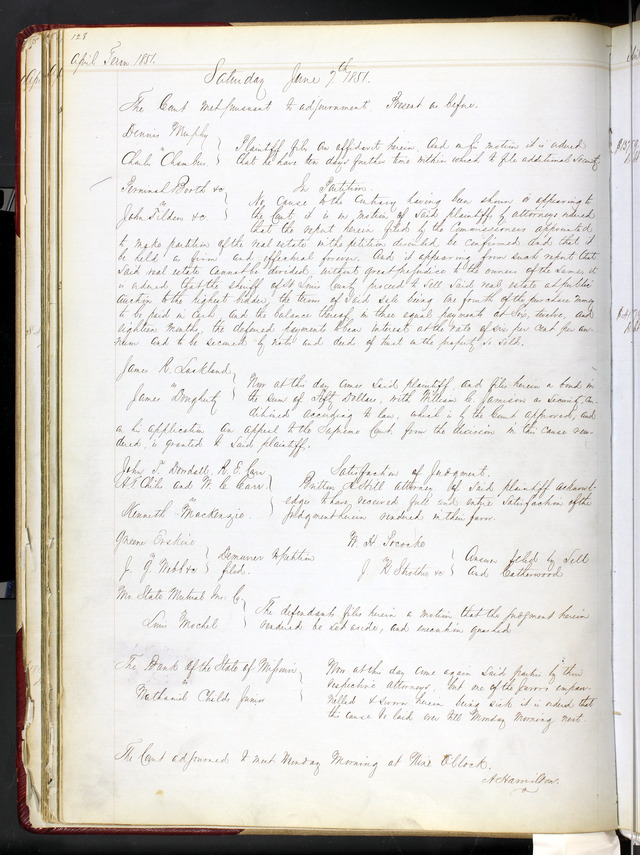 128
April Term 1851.
Saturday June 7th 1851.
The Court met pursuant to adjournment Present as before.
Dennis Murphy
vs
Charles Chambers
Plaintiff files an affidavit herein, And on his motion it is ordered
that he have ten days further time within which to file additional Security
Perminal Borth &c
vs
John Tilden &c
In Partition.
No cause to the contrary having been shown or appearing to
the Court it is on motion of said plaintiffs by attorneys ordered
that the report herein filed by the Commissioners appointed
to make partition of the real estate in the petition described be confirmed and that it
be held as firm and effectual forever. And it appearing from said report that
said real estate cannot be divided, without great prejudice to the owners of the same it
is ordered that the sheriff of St Louis County proceed to sell said real estate at public
Auction to the highest bidder, the terms of said sale being one fourth of the purchase money
to be paid in cash, and the balance thereof in three equal payments at six, twelve, and
eighteen months, the deferred payments to bear interest at the rate of six per cent per an-
num and to be secured by note and deed of trust on the property so sold.
James R. Lackland
vs
James Dougherty
Now at this day comes said plaintiff, and files herein a bond in
the sum of Fifty Dollars, with William C. Jamison as Security, con-
ditioned according to law, which is by the Court approved, and
on his application an appeal to the Supreme Court from the decision in this cause ren-
dered, is granted to said plaintiff.
John T. Dowdall, R. E. Carr
and W. C. Carr
vs
Kenneth MacKenzie.
Satisfaction of Judgment.
Britton A Hill attorney of said plaintiffs acknowl-
edges to have received full and entire satisfaction of the
Judgment herein rendered in their favor.
Greene Erskine
vs
J. Y. Webb &c
Demurrer to petition
filed.
W. H. Pococke
vs
J H Strother &c
Answer filed by Sell
and Catherwood
Mo. State Mutual In. Co
vs
Louis Mochel
The defendant files herein a motion that the Judgment herein
rendered be set aside, and execution quashed
The Bank of the State of Missouri
vs
Nathaniel Childs Junior
Now at this day come again said parties by their
respective attorneys, but one of the Jurors impan-
nelled & sworn herein being sick it is ordered that
the cause be laid over till Monday Morning next.
The Court adjourned to meet Monday Morning at Nine O'clock.
A Hamilton.